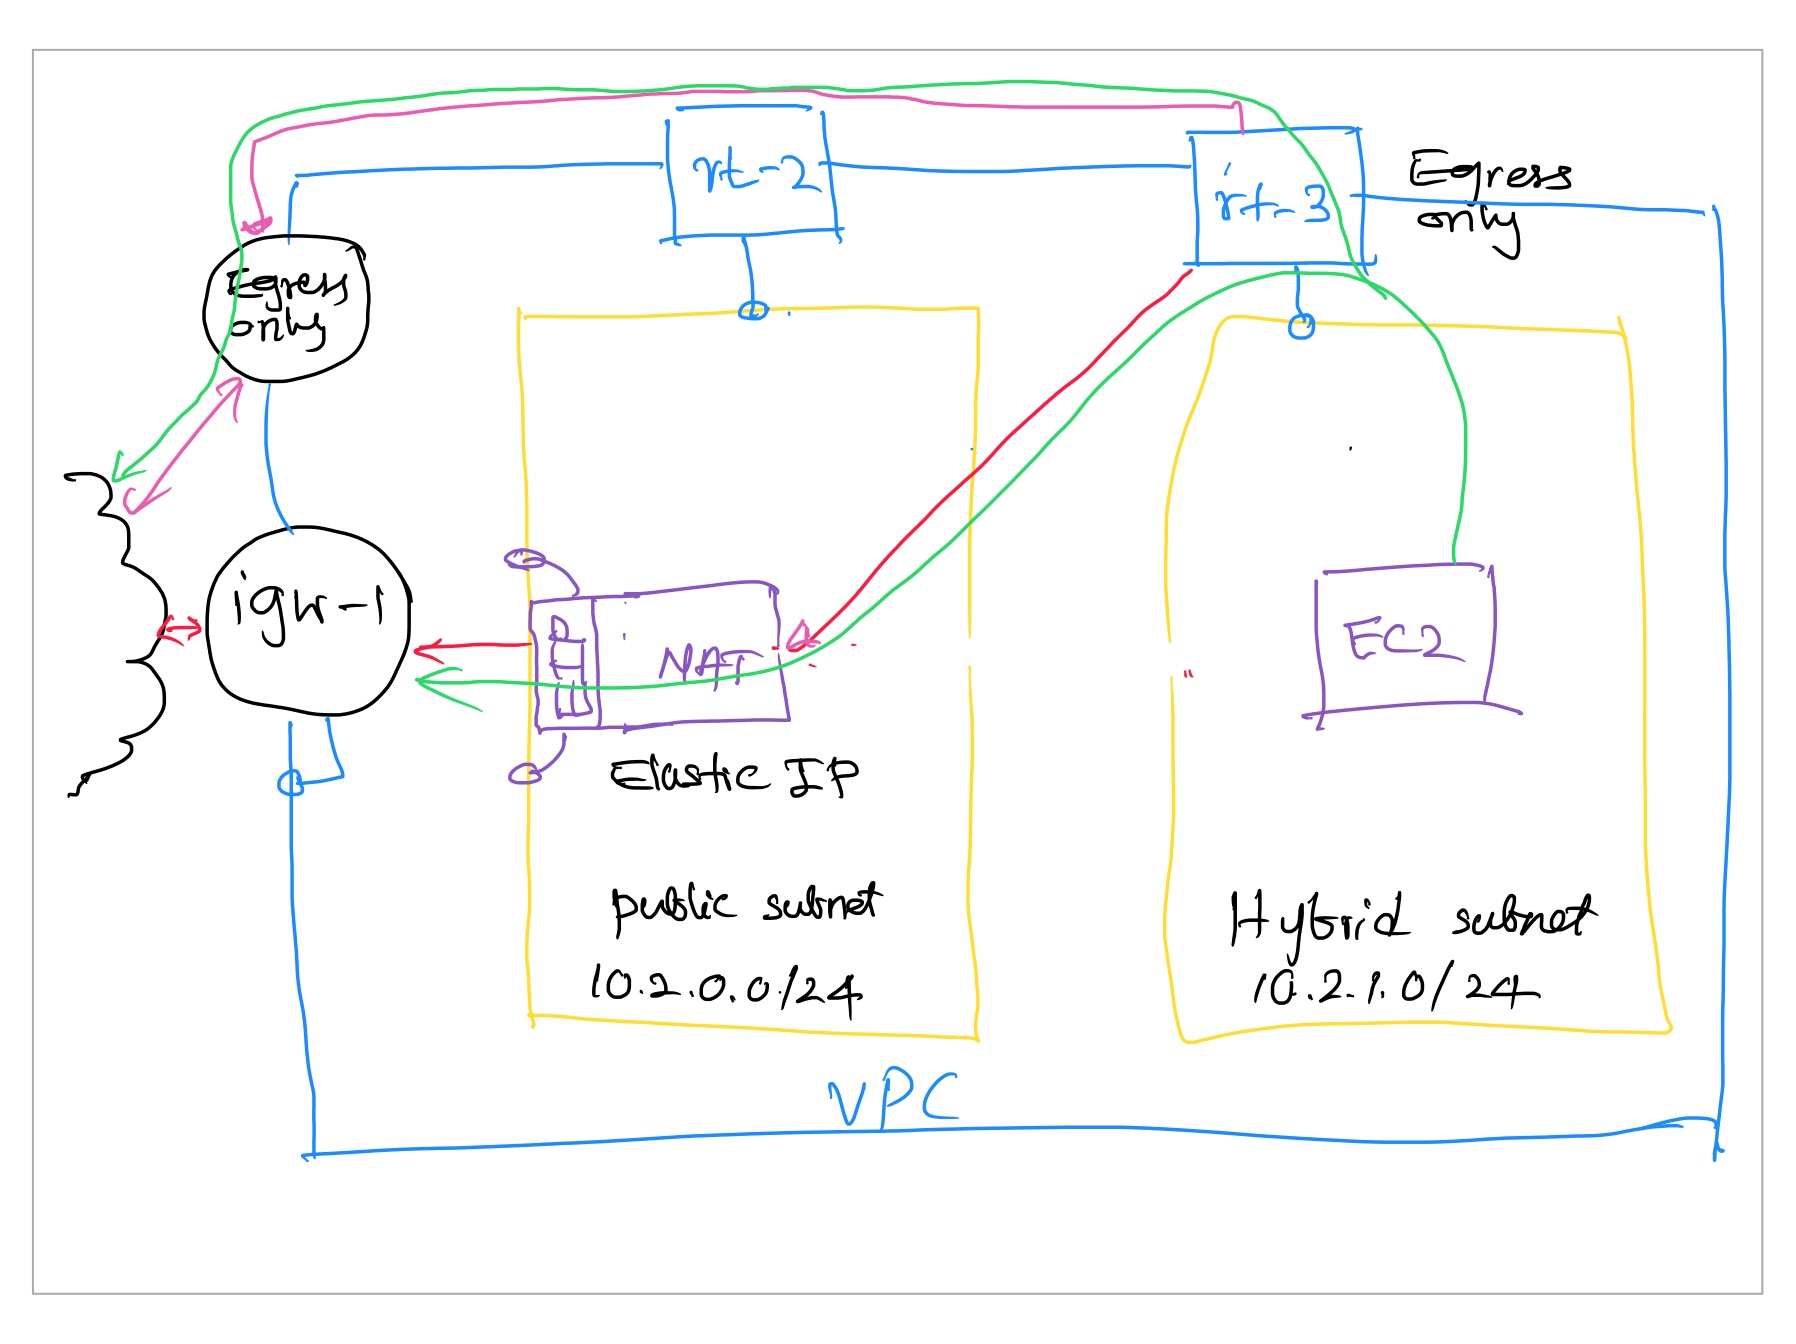 rt-2
rt-3
Egress
only
Egress
only
igw-1
EIP
NAT
EC2
Elastic IP
public subnet
10.2.0.0/24
Hybrid subnet
10.2.1.0/24
VPC